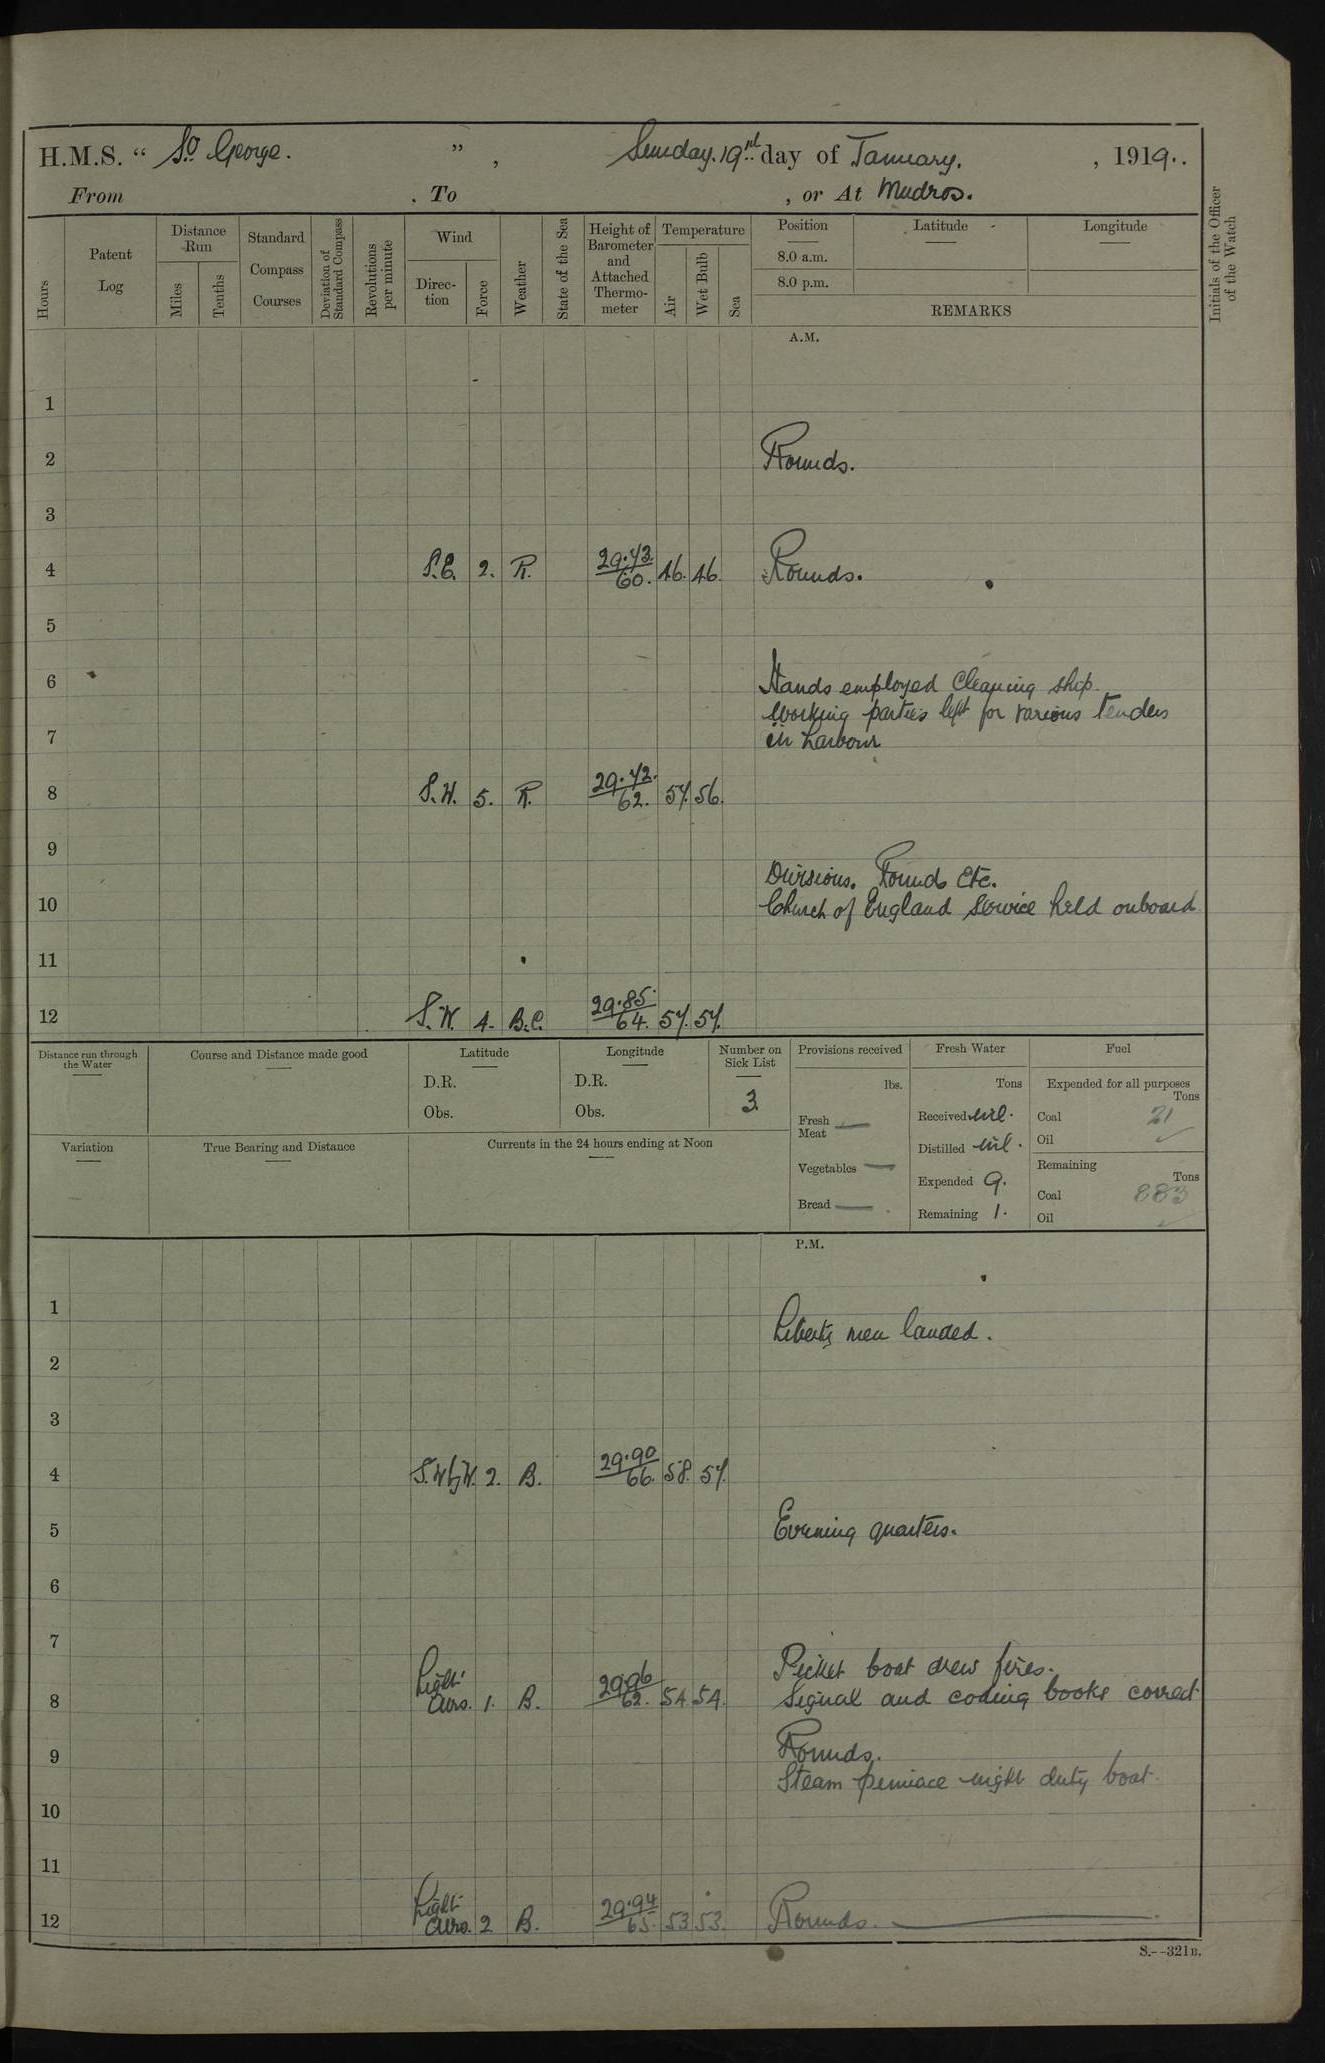 H.M.S. “ St George. ” , Sunday. 19rd day of January. , 1919..
From . To , or At Mudros.
Hours
Patent Log
Distance Run
Miles
Tenths
Standard Compass Courses
Deviation of Standard Compass
Revolutions per minute
Wind
Direc-tion
Force
Weather
State of the Sea
Height of Barometer and Attached Thermo-meter
Temperature
Air
Wet Bulb
Sea
Position Latitude Longitude
8.0 a.m.
8.0 p.m.
REMARKS
Initials of the Officer of the Watch
A.M.
1
2 Rounds.
3
4 S.E. 2. R. 60. 46. 46. Rounds.
5
6 Hands employed Cleaning ship.
Working parties left for various Tenders
7 in harbour
8 S.W. 5. R. 62. 57. 56.
9
Divisions. Rounds Etc.
10 Church of England Service held onboard
11
12 S.W. 4. B.C. 29.85. 64. 57. 57.
Distance run through the Water
Course and Distance made good
Latitude
D.R.
Obs.
Longitude
D.R.
Obs.
Number on Sick List
3
Provisions received
lbs.
Fresh Meat —
Vegetables —
Bread —
Fresh Water
Tons
Received nil.
Distilled nil.
Expended 9.
Remaining 1.
Fuel
Expended for all purposes
Tons
Coal 21
Oil
Remaining
Tons
Coal 883
Oil
Variation
True Bearing and Distance
Currents in the 24 hours ending at Noon
P.M.
1
Liberty men landed.
2
3
4 S.W by W. 2. B. 29.90 66. 58. 57.
5 Evening quarters.
6
7
Picket boat drew fires.
8 Light Airs. 1. B. 29.96 62. 54. 54. Signal and coding books correct
9 Rounds.
Steam pinnace night duty boat.
10
11
12 Light Airs. 2 B. 29.94 65. 53 53. Rounds.
S.--321B.